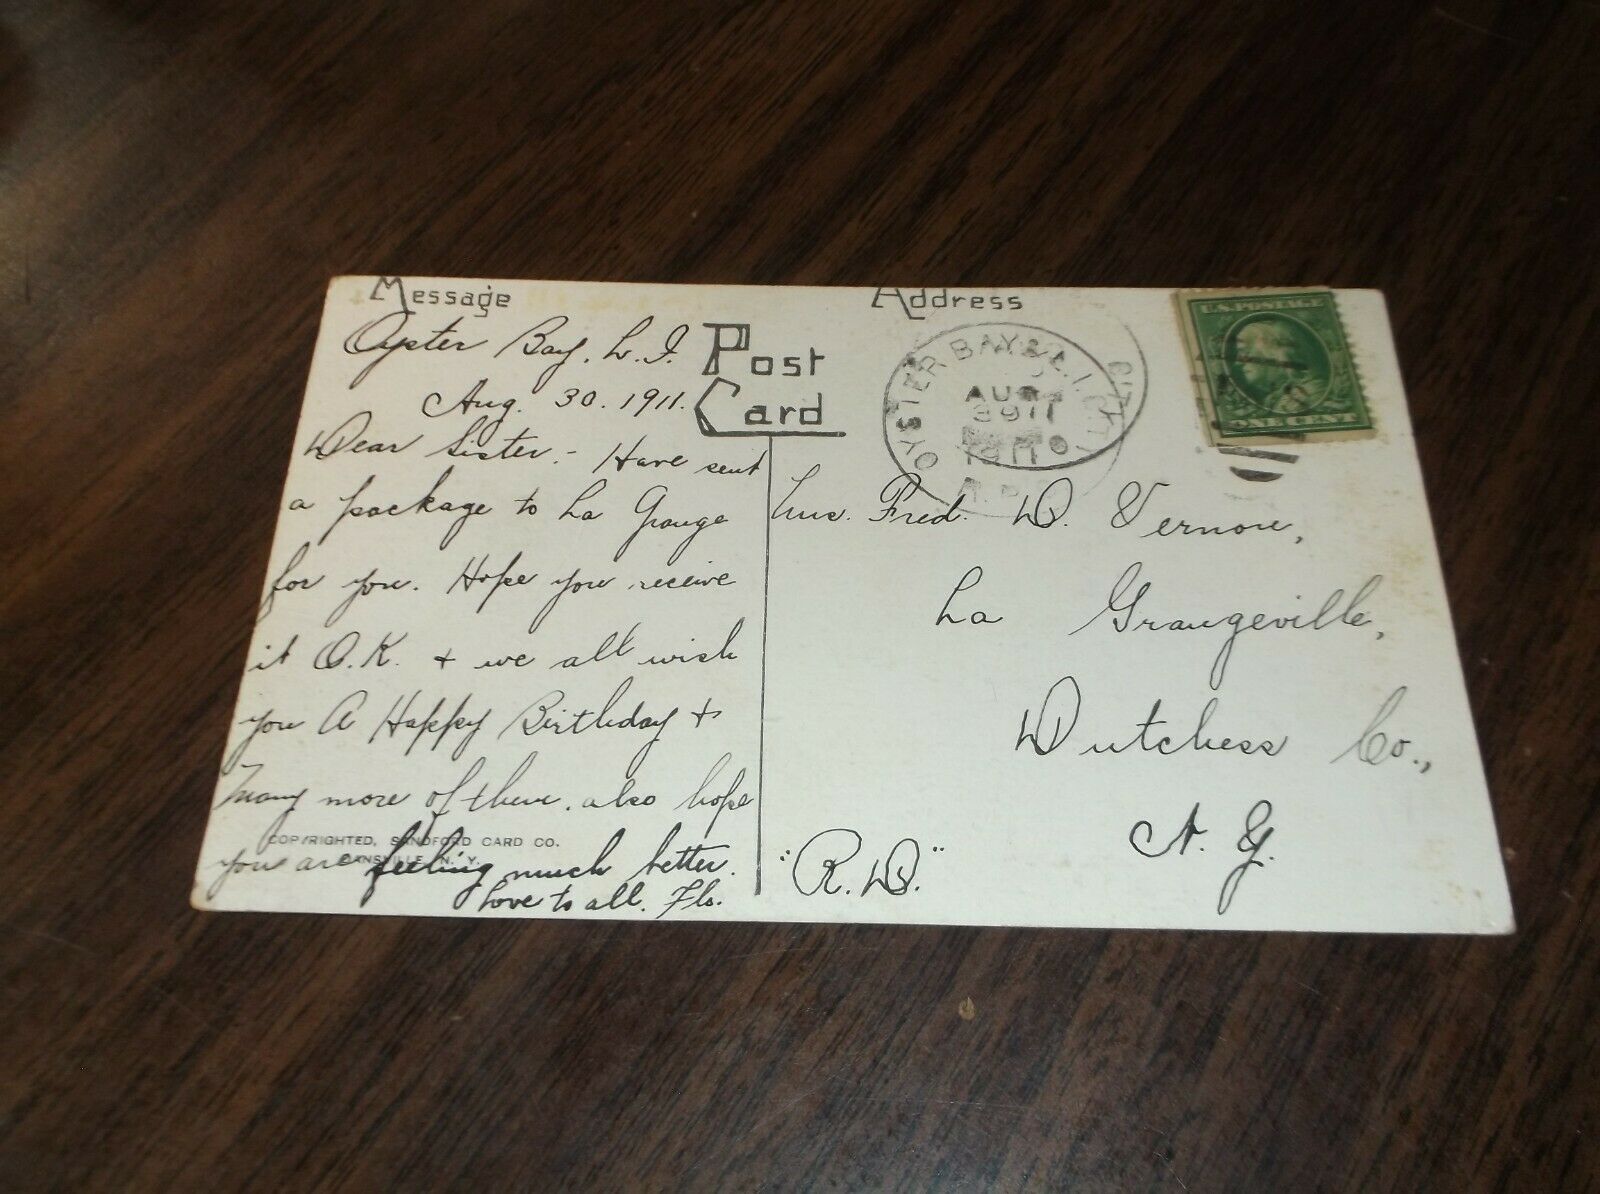 Message
Oyster Bay, L. I.
Aug. 30. 1911.
Dear Sister:- Have sent
a package to La Grange
for you. Hope you receive
it O.K. + we all wish
you A Happy Birthday +
Many more of them. also hope
you are feeling much better.
Love to all. Flo.
COPYRIGHTED, SANDFORD CARD CO.
DANSVILLE, N. Y.
Post
Card
Address
OYSTER BAY & 
AUG
1911
R.P.O.
U.S. POSTAGE
ONE CENT
Mrs. Fred. D. Vernon,
La Grangeville,
Dutchess Co.,
N. Y.
"R.D."